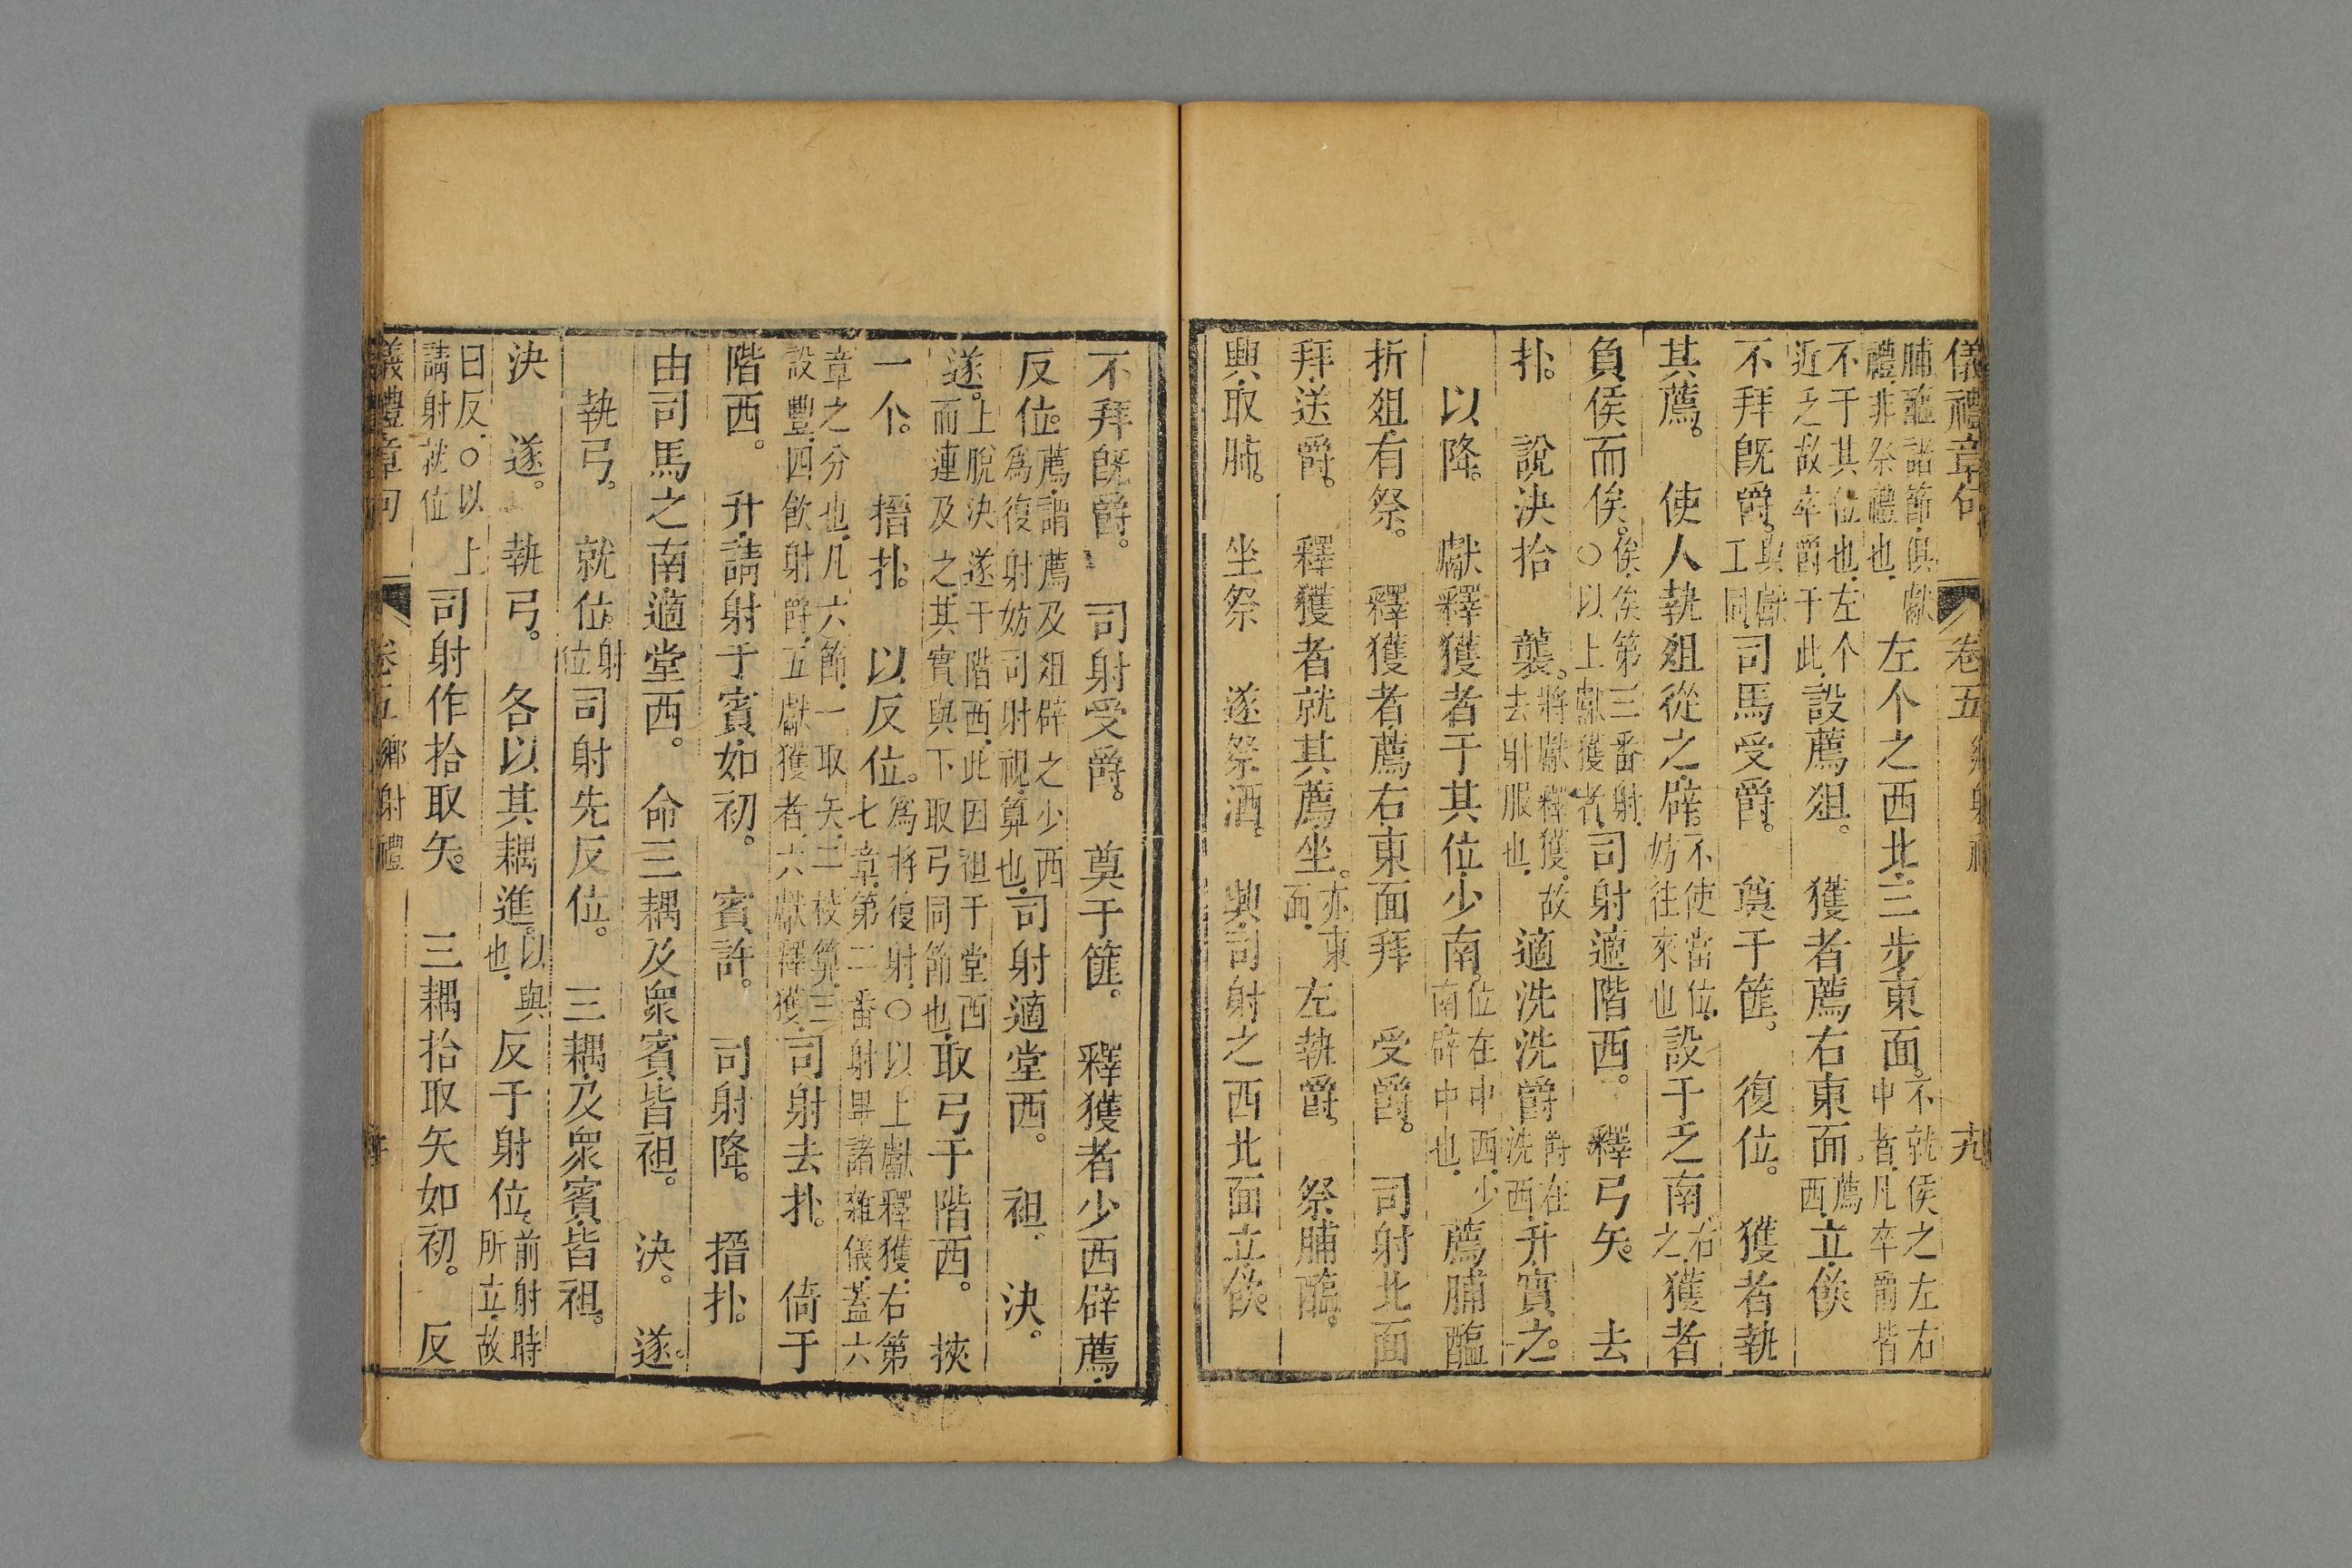 儀禮章句 卷五 鄉射禮 九
脯醢諸節俱獻禮非祭禮也左个之西北三步東面。不就侯之左右中者凡卒爵皆
不于其位也左个近之故卒爵于此設薦俎。獲者薦右東面薦西立飲
不拜既爵。與獻工同司馬受爵。奠于篚。復位。獲者執
其薦。使人執俎從之辟。不使當位妨往來也設于乏南右之獲者
負侯而俟。俟俟第三番射〇以上獻獲者司射適階西。釋弓矢。去
扑。說決拾襲。將獻釋獲故去射服也適洗洗爵爵在洗西升實之。
以降。獻釋獲者于其位少南。位在中西少南辟中也薦脯醢
折俎有祭。釋獲者薦右東面拜受爵。司射北面
拜送爵。釋獲者就其薦坐。亦東面左執爵。祭脯醢。
興取肺。坐祭遂祭酒。興司射之西北面立飲。
不拜既爵。司射受爵。奠于篚。釋獲者少西辟薦
反位。薦謂薦及俎辟之少西爲復射妨司射視算也司射適堂西。袒。決。
遂。上脫決遂于階西此因袒于堂西而連及之其實與下取弓同節也取弓于階西。挾
一个。搢扑。以反位。爲將復射〇以上獻釋獲右第七章第二番射畢諸雜儀蓋六
章之分也凡六節一取矢二校算三設豐四飲射爵五獻獲者六獻釋獲司射去扑。倚于
階西。升請射于賓如初。賓許。司射降。搢扑。
由司馬之南適堂西。命三耦及眾賓皆袒。決。遂。
執弓。就位射位司射先反位。三耦及眾賓皆袒。
決遂。執弓。各以其耦進。以與也反于射位。前射時所立故
曰反〇以上請射就位司射作拾取矢。三耦拾取矢如初。反
儀禮章句 卷五 鄉射禮